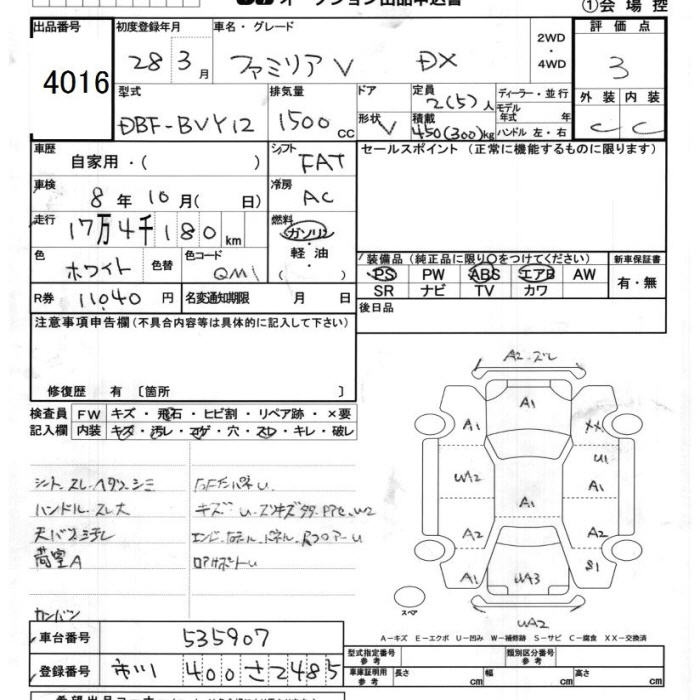 オークション出品申込書 ①会場控
出品番号 初度登録年月 車名・グレード 2WD・4WD 評価点
4016 28 3月 ファミリア V DX 3
型式 排気量 ドア 定員 2(5)人 ディーラー・並行 外装 内装
DBF-BVY12 1500cc 形状 V 積載 450(300)kg モデル年式 年 ハンドル 左・右 C C
車歴 自家用・( ) シフト FAT セールスポイント(正常に機能するものに限ります)
車検 8年10月( 日) 冷房 AC
走行 17万4千180km 燃料 ガソリン・軽油・( )
色 ホワイト 色替 色コード QM1
装備品(純正品に限り○をつけてください) 新車保証書
PS PW ABS エアB AW 有・無
SR ナビ TV カワ
R券 11040円 名変通知期限 月 日 後日品
注意事項申告欄(不具合内容等は具体的に記入して下さい)
修復歴 有〔箇所 〕
検査員 FW キズ・飛石・ヒビ割・リペア跡・×要
記入欄 内装 キズ・汚レ・コゲ・穴・スレ・キレ・破レ
シート スレ ヘタリ シミ
ハンドル スレ大 キズ
荷室A
A2 ズレ
A1
A1 XX
U1
W12 A1 A1
A2 A2
A1 UA3 S1
スペア
UA2
A-キズ E-エクボ U-凹み W-補修跡 S-サビ C-腐食 XX-交換済
車台番号 535907 型式指定番号 参考 類別区分番号 参考
登録番号 市川 400 さ 2485 車庫証明用 参考 長さ cm 幅 cm 高さ cm